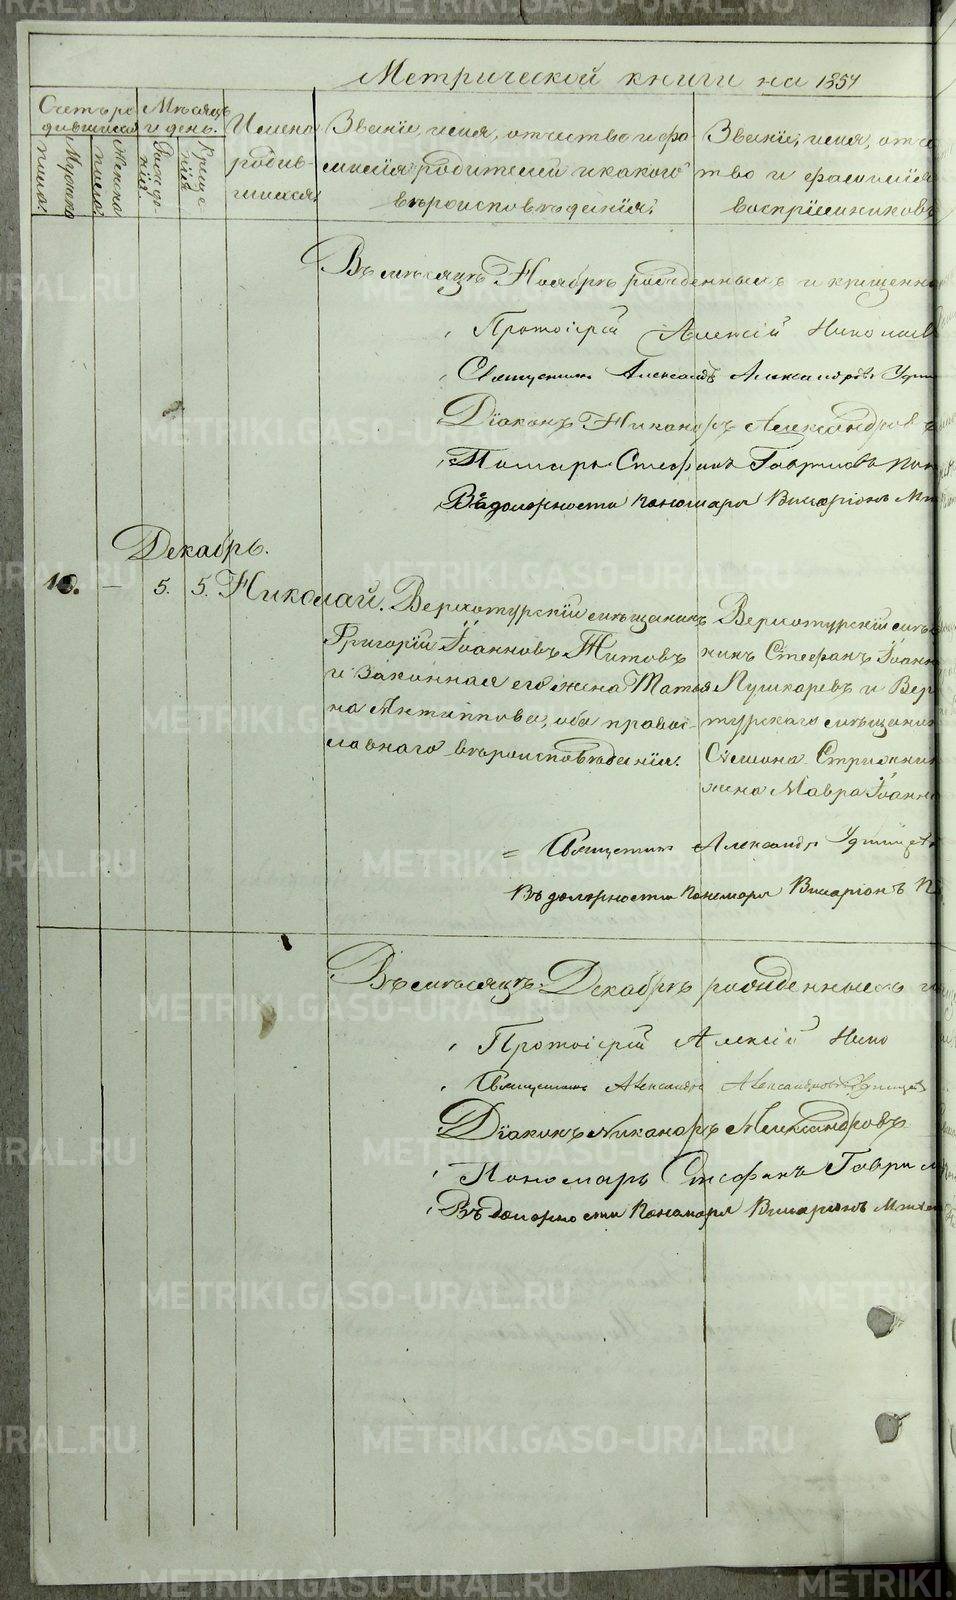 Метрической книги на 1857
Счетъ ро-
дившихся
Мѣсяцъ
и день.
Имена
родив-
шихся.
Званіе, имя, отчество и фа-
милія родителей и какого
вѣроисповѣданія.
Званіе, имя, отче
тво и фамилія
воспріемниковъ
Мужска
пола.
Женска
пола.
Рожде-
нія.
Креще-
нія.
Въ мѣсяцѣ Ноябрѣ рожденныхъ и крещенн
Протоіерей Алексій Никола
Священникъ Александръ Александровъ
Діаконъ Никаноръ Александров
Стефанъ Гавриловъ
Въ должности пономаря Виссаріонъ
Декабрь.
10. — 5. 5. Николай. Верхотурскій мѣщанинъ
Григорій Іоанновъ Титовъ
и законная его жена Татья
на Антиппова, оба правос-
лавнаго вѣроисповѣданія.
Верхотурскій мѣщ
нинъ Стефанъ Іоанн
Пушкаревъ и Верх
турскаго мѣщанин
Симона
жена Мавра Іоанн
Священникъ Александръ Удинцевъ
Въ должности пономаря Виссаріонъ
Въ мѣсяцѣ Декабрѣ рожденныхъ и
Протоіерей Алексій Нико
Священникъ Александръ Александровъ Удинцев
Діаконъ Никаноръ Александровъ
Пономарь Стефанъ Гаврил
Въ должности пономаря Виссаріонъ
METRIKI.GASO-URAL.RU